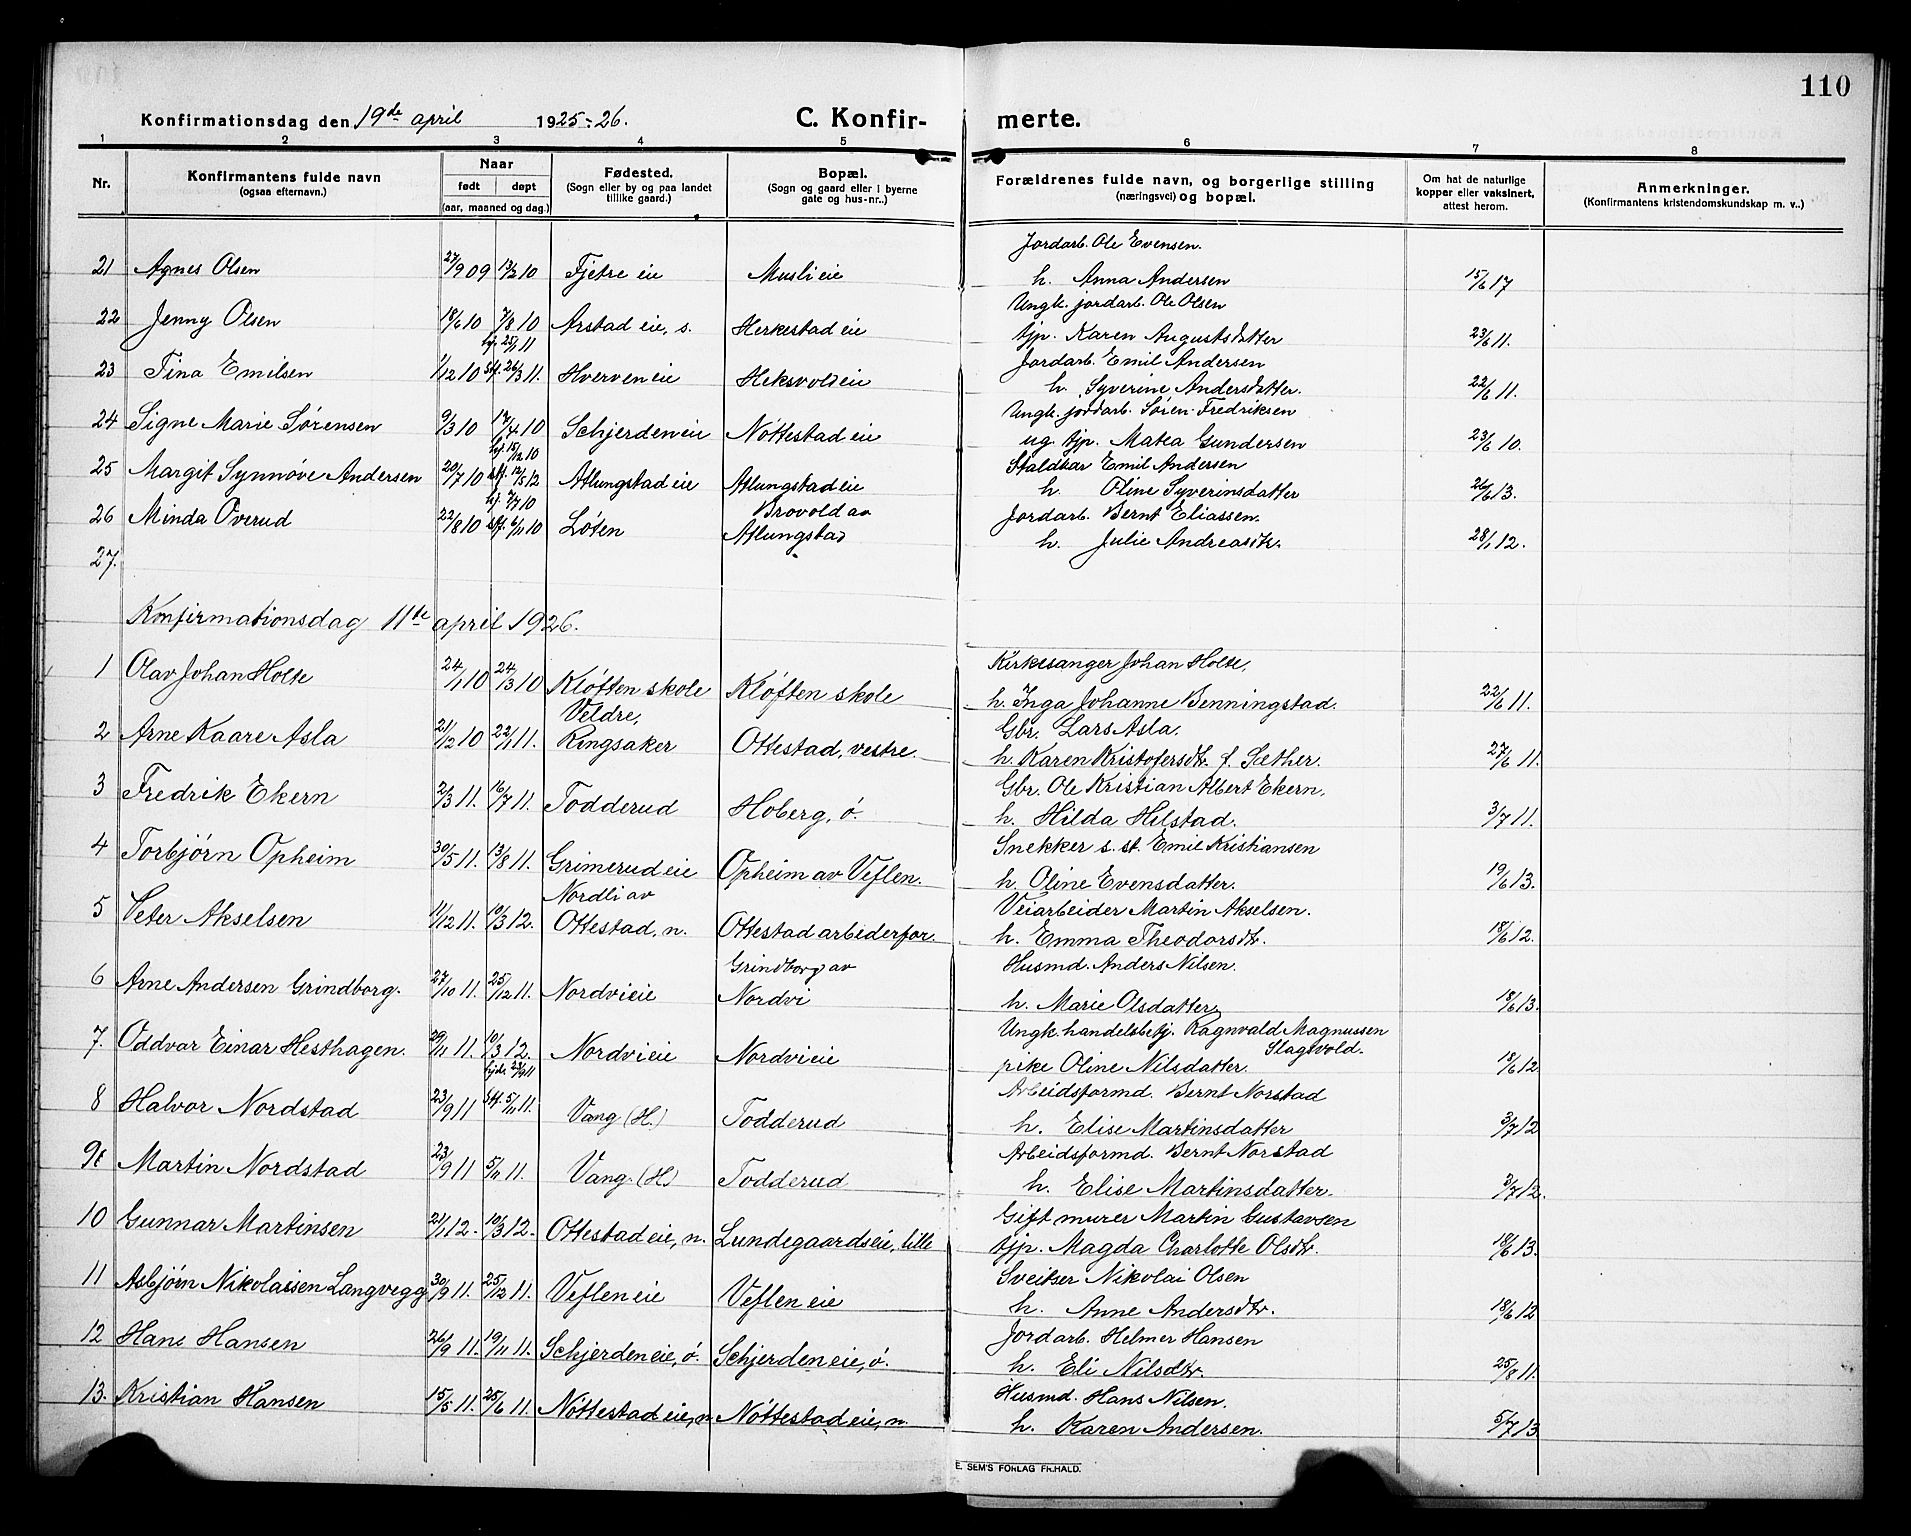 110
Konfirmationsdag den 19de april 1925-26. C. Konfirmerte.
1 2 3 4 5 6 7 8
Nr. Konfirmantens fulde navn (ogsaa efternavn.) Naar født døpt (aar, maaned og dag.) Fødested. (Sogn eller by og paa landet tillike gaard.) Bopæl. (Sogn og gaard eller i byerne gate og hus-nr..) Forældrenes fulde navn, og borgerlige stilling (næringsvei) og bopæl. Om hat de naturlige kopper eller vaksinert, attest herom. Anmerkninger. (Konfirmantens kristendomskundskap m. v..)
Jordarb. Ole Evensen.
21 Agnes Olsen 27/9 09 13/2 10 Fjetre eie Musli eie h. Anna Andersen 15/6 17
Ungk. jordarb. Ole Olsen
22 Jenny Olsen 18/6 10 7/8 10 Arstad eie, s. Herkestad eie tjp. Karen Augustsdatter 23/6 11.
hj. 25/1 11 Jordarb. Emil Andersen
23 Tina Emilsen 1/12 10 stf. 26/3 11. Hverven eie Heksvold eie h. Syverine Andersdatter. 22/6 11.
Ungk. jordarb. Søren Fredriksen
24 Signe Marie Sørensen 9/3 10 17/4 10 Schjerden eie Nøttestad eie ug. tjp. Matea Gundersen 23/6 10.
hj. 15/12 10 Staldkar Emil Andersen
25 Margit Synnøve Andersen 20/7 10 stf. 12/5 12 Atlungstad eie Atlungstad eie h. Oline Syverinsdatter 26/6 13.
hj. 7/7 10 Brovold av Jordarb. Bernt Eliassen.
26 Minda Overud 22/8 10 stf. 6/11 10 Løten Atlungstad h. Julie Andreasdtr. 28/1 12.
27.
Konfirmationsdag 11te april 1926.
Kirkesanger Johan Holte,
1 Olav Johan Holte 24/1 10 24/3 10 Kløften skole Kløften skole h. Inga Johanne Benningstad. 22/6 11.
Veldre, Gbr. Lars Asla.
2 Arne Kaare Asla 21/12 10 22/1 11. Ringsaker Ottestad, vestre. h. Karen Kristofersdtr. f. Sæther. 27/6 11.
Gbr. Ole Kristian Albert Ekern,
3 Fredrik Ekern 2/3 11. 16/7 11. Todderud Hoberg, ø. h. Hilda Hilstad. 3/7 11.
Snekker s. st. Emil Kristiansen
4 Torbjørn Opheim 30/5 11. 13/8 11. Grimerud eie Opheim av Veflen. h. Oline Evensdatter. 19/6 13.
Nordli av Veiarbeider Martin Akselsen.
5 Peter Akselsen 11/12 11. 10/3 12. Ottestad, n. Ottestad arbeiderfor. h. Emma Theodorsdtr. 18/6 12.
Grindborg av Husmd. Anders Nilsen.
6 Arne Andersen Grindborg. 27/10 11. 25/12 11. Nordvi eie Nordvi h. Marie Olsdatter 18/6 13.
Ungk. handelsbetj. Ragnvald Magnussen Slagsvold.
7. Oddvar Einar Hesthagen. 29/11 11. 10/3 12. Nordvi eie Nordvi eie pike Oline Nilsdatter. 18/6 12
hjd. 23/9 11 Arbeidsformd. Bernt Norstad
8 Halvor Nordstad 23/9 11 stf. 5/11 11. Vang (H.) Todderud h. Elise Martinsdatter 3/7 12
Arbeidsformd. Bernt Norstad
9 Martin Nordstad 23/9 11 5/11 11. Vang. (H.) Todderud h. Elise Martinsdatter. 3/7 12.
Gift murer Martin Gustavsen
10 Gunnar Martinsen 21/1 12. 10/3 12. Ottestad eie, n. Lundegaardseie, lille tjp. Magda Charlotte Olsdtr. 18/6 13.
Sveitser Nikolai Olsen
11 Asbjørn Nikolaisen Langvegg 30/9 11. 25/12 11. Veflen eie Veflen eie h. Anne Andersdtr. 18/6 12
Jordarb. Helmer Hansen
12 Hans Hansen 26/9 11. 19/11 11. Schjerden eie, ø. Schjerden eie, ø. h. Eli Nilsdtr. 25/8 11.
Husmd. Hans Nilsen.
13. Kristian Hansen 15/5 11. 25/6 11. Nøttestad eie, n. Nøttestad eie, n. h. Karen Andersen. 5/7 13
E. SEM'S FORLAG FR.HALD.